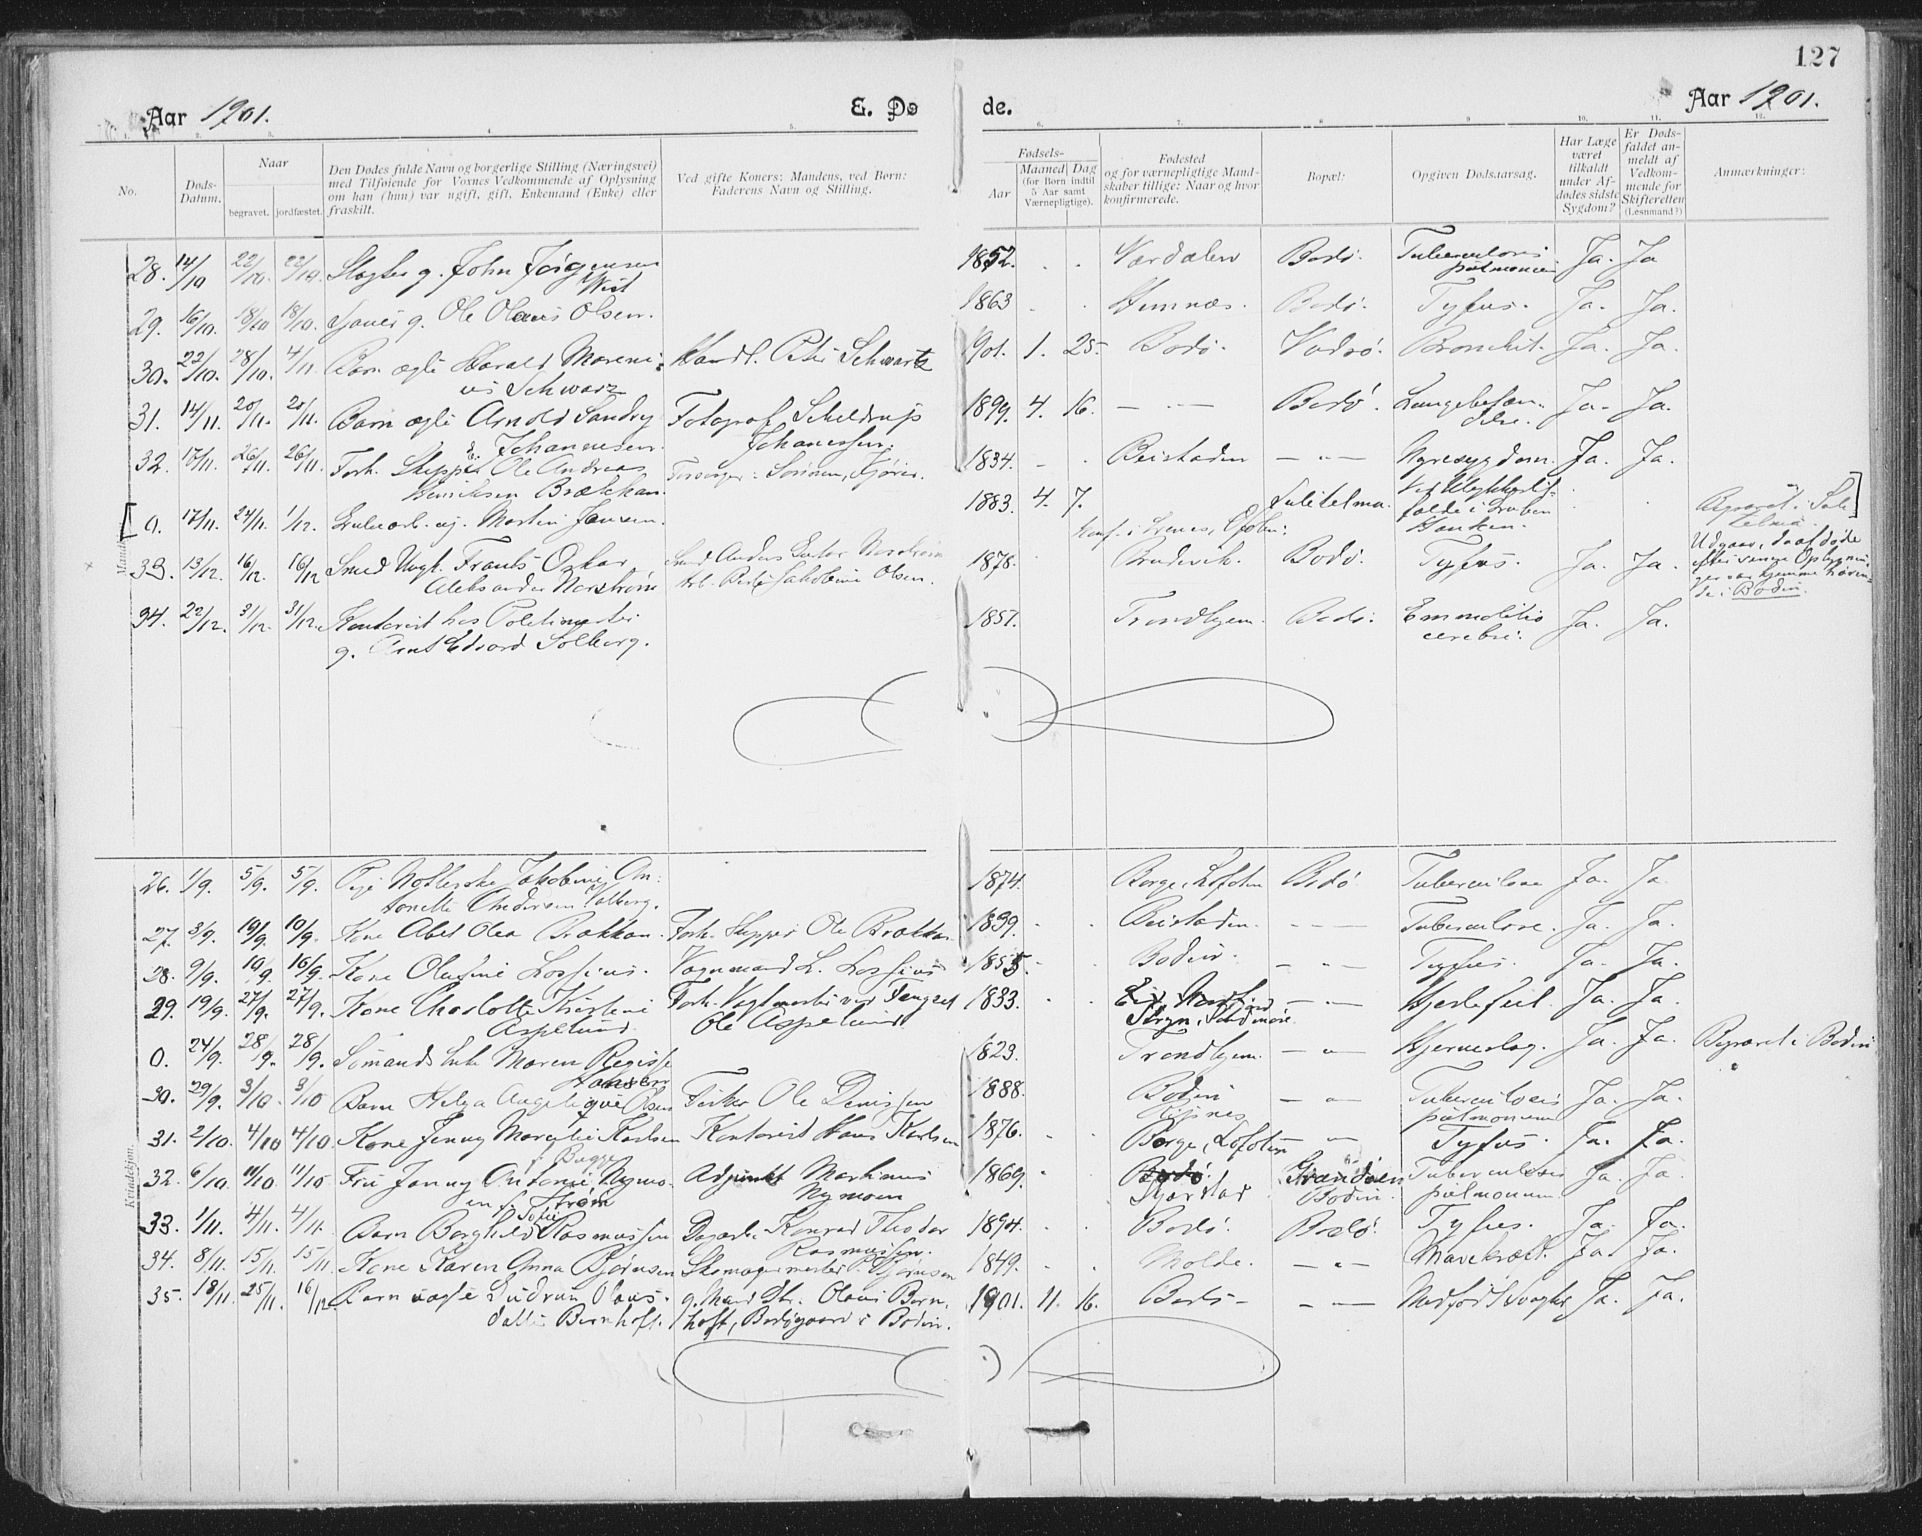 127
Aar 1901. E. Dø de. Aar 1901.
No.
Døds-Datum.
Naar
begravet. jordfæstet.
Den Dødes fulde Navn og borgerlige Stilling (Næringsvei)
med Tilføiende for Voxnes Vedkommende af Oplysning
om han (hun) var ugift, gift, Enkemand (Enke) eller
fraskilt.
Ved gifte Koners: Mandens, ved Børn:
Faderens Navn og Stilling.
Fødsels-
Aar Maaned Dag
(for Børn indtil
5 Aar samt
Værnepligtige).
Fødested
og for værnepligtige Mand-
skaber tillige: Naar og hvor
konfirmerede.
Bopæl:
Opgiven Dødsaarsag.
Har Læge
været
tilkaldt
under Af-
dødes sidste
Sygdom?
Er Døds-
faldet an-
meldt af
Vedkom-
mende for
Skifteretten
(Lensmand?)
Anmærkninger:
28. 14/10 22/10. 22/10. g. John Jørgensen 1852. Værdalen Bodø. Tuberculosis Ja. Ja
Vist pulmonum
29. 16/10. 18/10 18/10. g. Ole Olaus Olsen. 1863 Hemnæs. Bodø. Tyfus. Ja. Ja.
30. 22/10. 28/10. 4/11. Barn ægte Harald Moreni- Handl. Peter Schwartz 1901. 1. 25. Bodø. Vadsø. Bronchit. Ja. Ja.
us Schwarz
31. 14/11. 20/11. 20/11. Barn ægte Arnold Sandry Fotograf Scheldrup 1899. 4. 16. — — Bodø. Lungebetæn- Ja. Ja.
Johannesen. Johanessen. delse.
32. 17/11. 26/11. 26/11. Forh. Skipper Ole Andreas 1834. Beistaden — " — Nyresygdom. Ja. Ja.
Henriksen Brækkan.
[0. 17/11. 24/11. 1/12. Grubearb. ug. Martin Jensen. 1883. 4. 7. Sulitelma. Ved Ulykkestil-
fælde i Gruben
Hanken.
Begravet i Suli
telma.]
33. 13/12. 16/12. 16/12 Smed Ungk. Frants Oskar Smed Anders 1878. Bodø. Tyfus. Ja. Ja. Udgaar, da afdøde
Aleksander Norstrøm Jakobine Olsen. efter senere Oplysnin-
ger var hjemmehøren-
de i Bodin.
34. 22/12. 31/12. 31/12. Kontorist hos Politimester 1857. Trondhjem. Bodø. Emmolitio Ja. Ja.
g. Arnt Edvard Solberg. cerebri.
Kvindekjøn.
26. 1/9. 5/9. 5/9. Pige Jakobine An- 1874. Borge, Lofoten Bodø Tuberculose Ja. Ja.
tonette Andersen Valberg.
27. 3/9. 10/9. 10/9. Kone Abel Olea Brækkan. Forh. Skipper Ole Brækkan 1839. Beistaden. — — Tuberculose. Ja. Ja.
28. 9/9. 10/9. 16/9. Kone Olufine Lossius. Vognmand L. Lossius 1855. Bodin. — " — Tyfus. Ja. Ja.
29. 19/9. 27/9. 27/9. Kone Charlotte Kirstine Forh. Vagtmester ved Fængset 1833. — " — Hjertefeil. Ja. Ja.
Asplund. Ole Asplund Stryn,
0. 24/9. 28/9. 28/9. Sømands Enke Maren Regisse 1823. Trondhjem. — " — Hjerneslag. Ja. Ja. Begravet i Bodin
Hansen
30. 29/9. 3/10. 3/10 Barn Helga Angelique Olsen Fisker Ole Denissen 1888. Bodin — " — Tuberculosis Ja. Ja.
pulmonum
31. 2/10. 4/10 4/10. Kone Jenny Karlsen Kontorist Hans Karlsen 1876. Borge, Lofoten — " — Tyfus. Ja. Ja.
f. Bugge
32. 6/10. 11/10 11/10 Fru Jenny Antonie Nymo- Adjunkt Martinus 1869. Bodø. Grandøen Tuberculosis Ja. Ja.
en f. Strøm Nymoen Stjørdal Bodin. pulmonum
33. 1/11. 4/11. 4/11. Barn Borghild Sofie Rasmussen Dagarb. Konrad Theodor 1894. Bodø. Bodø. Tyfus. Ja. Ja.
Rasmussen.
34. 8/11. 15/11. 15/11. Kone Karen Anna Bjørnsen Skomagermester P. Bjørnsen 1849. Molde. — " — Mavekræft. Ja. Ja.
35. 18/11. 25/11. 16/12. Barn uægte Gudrun Olaus- g. Mand Olaus Bern- 1901. 11. 16. Bodø — — " — Medfødt Svaghed Ja. Ja.
datter Bernhoft. hoft, Bodøgaard i Bodin.